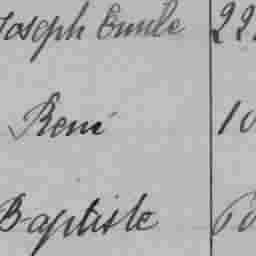 Joseph Emile 22
René 10
Baptiste 60